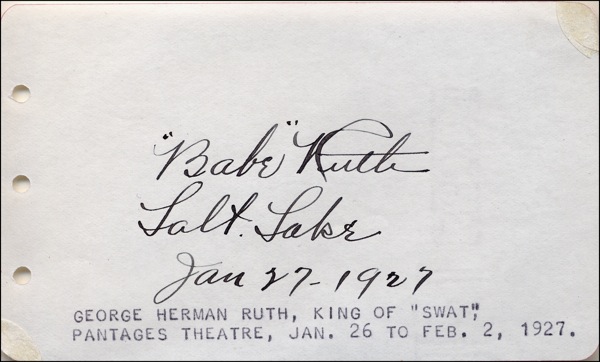 "Babe" Ruth
Salt. Lake
Jan 27-1927
GEORGE HERMAN RUTH, KING OF "SWAT",
PANTAGES THEATRE, JAN. 26 TO FEB. 2, 1927.